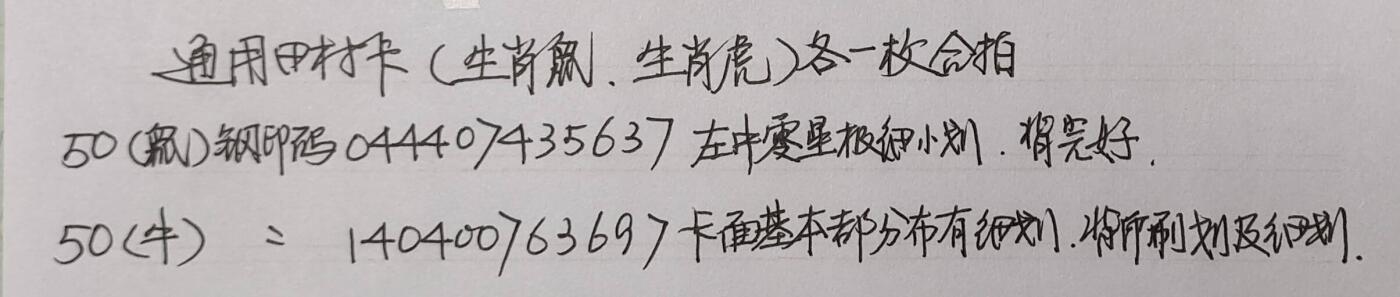 通用田村卡(生肖鼠、生肖虎)各一枚合拍
50(鼠)钢印码044407435637左中零星极细小划.背完好.
50(牛) = 140400763697卡面基本部分布有细划.背印刷划及细划.